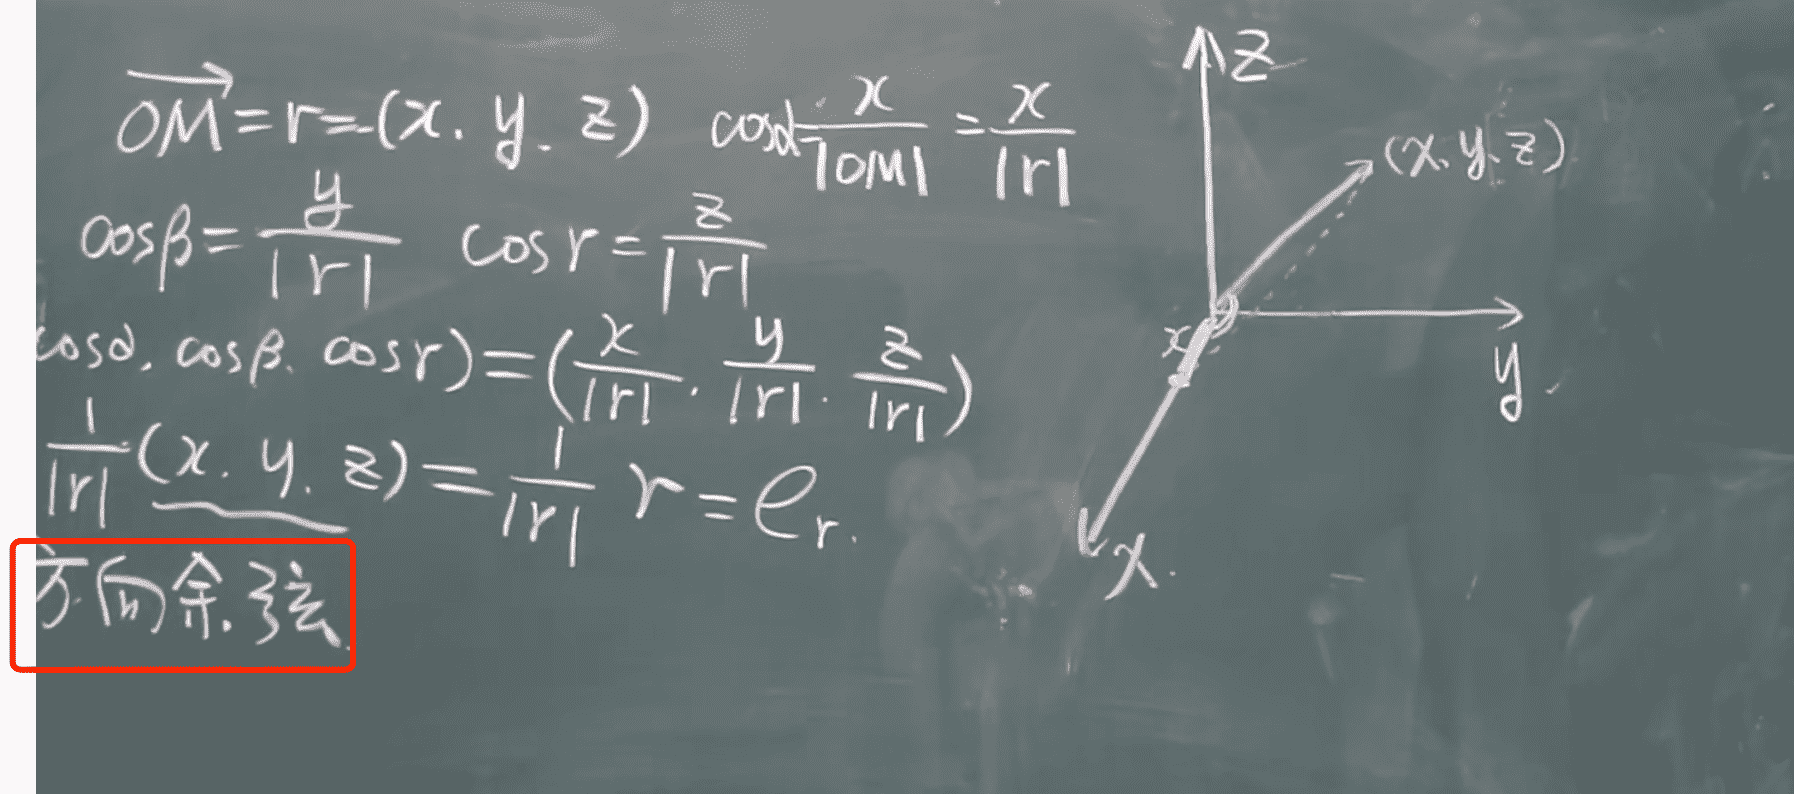 OM = r = (x. y. z) cosα = x/|OM| = x/|r|
cosβ = y/|r| cos r = z/|r|
cosα. cosβ. cos r) = (x/|r|. y/|r|. z/|r|)
1/|r| (x. y. z) = 1/|r| r = e_r.
方向余弦
z
(x. y. z)
x
y
x.